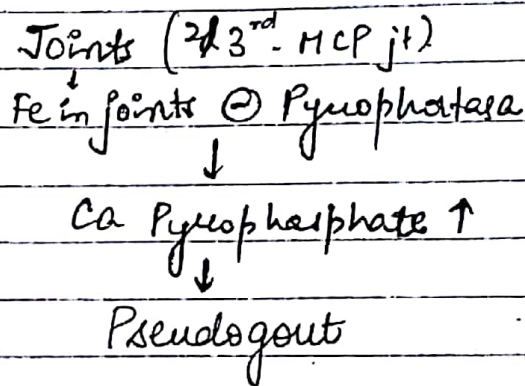 Joints (2& 3rd- MCP jt)
↓
Fe in joints ⊖ Pyrophosphatase
↓
Ca Pyrophosphate ↑
↓
Pseudogout